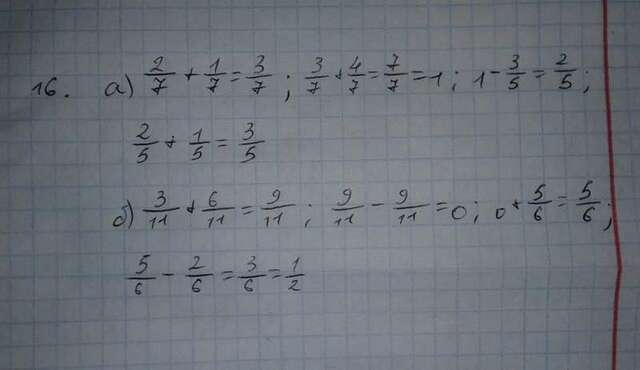 16. а) 2/7 + 1/7 = 3/7 ; 3/7 + 4/7 = 7/7 = 1 ; 1 - 3/5 = 2/5 ;
2/5 + 1/5 = 3/5
б) 3/11 + 6/11 = 9/11 ; 9/11 - 9/11 = 0 ; 0 + 5/6 = 5/6 ;
5/6 - 2/6 = 3/6 = 1/2